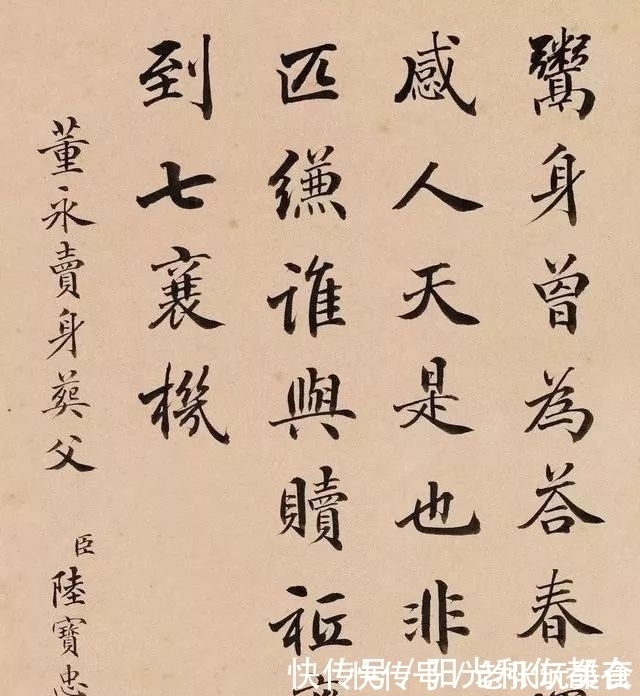 鬻身曾為荅春
感人天是也非
匹縑誰與贖
到七襄機
董永賣身葬父
臣陸寶忠
快传号/阳光和你都在